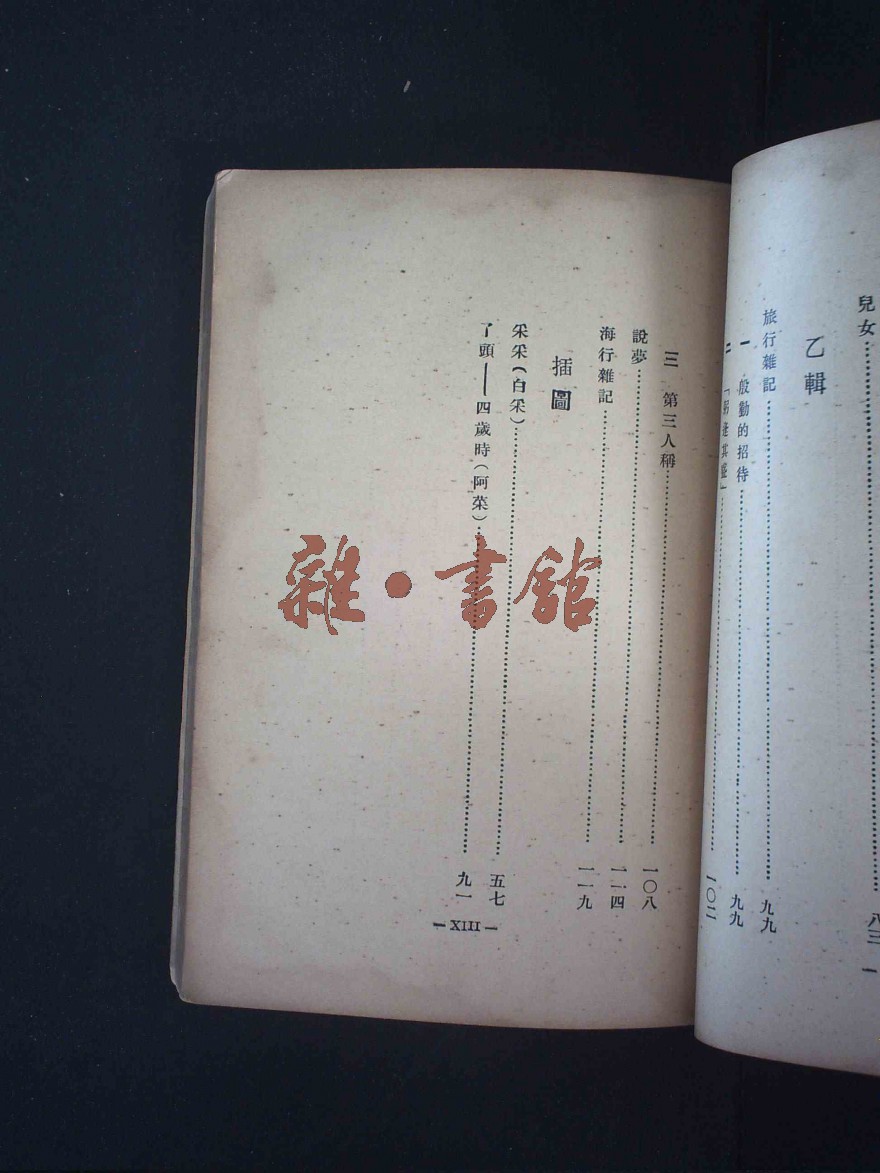 兒女……八三
乙輯
旅行雜記……九九
一 殷勤的招待……九九
二 「躬逢其盛」……一〇二
三 第三人稱……一〇八
說夢……一一四
海行雜記……一一九
插圖
采采(白采)……五七
了頭——四歲時(阿菜)……九一
— XIII —
雜·書館